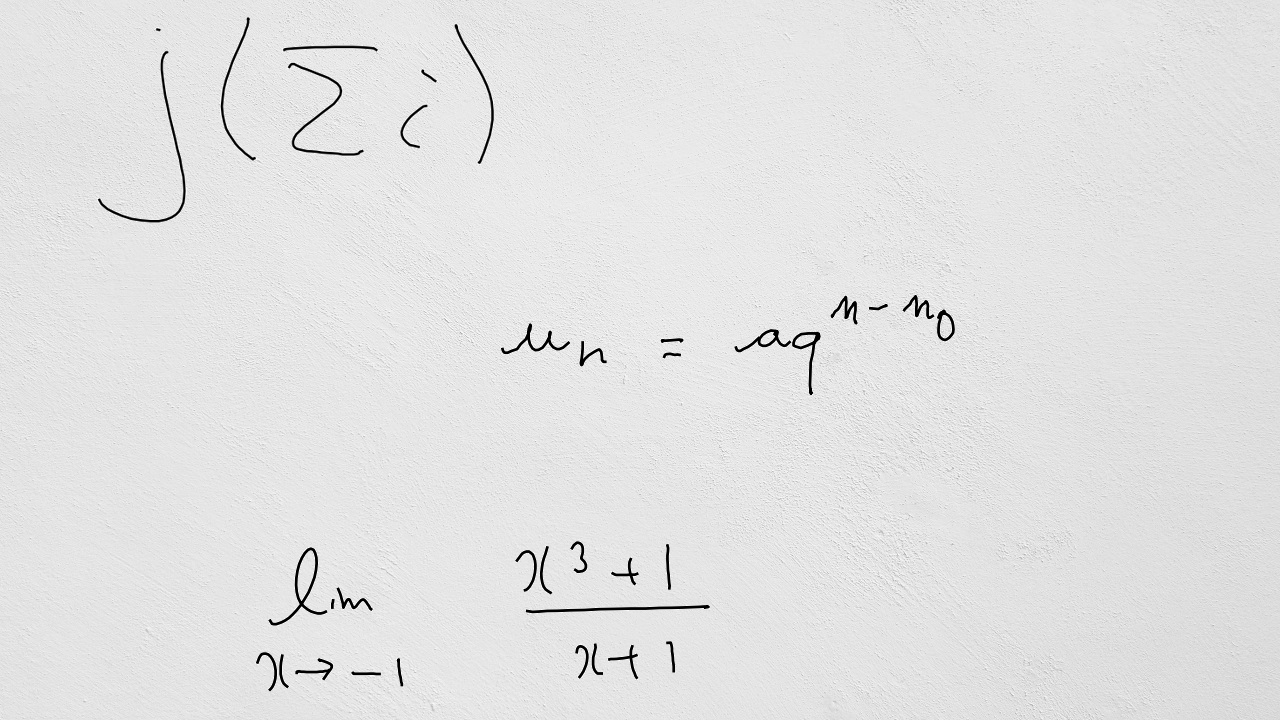 j(∑̅ i)
uₙ = aqⁿ⁻ⁿ⁰
lim x→-1 (x³+1)/(x+1)